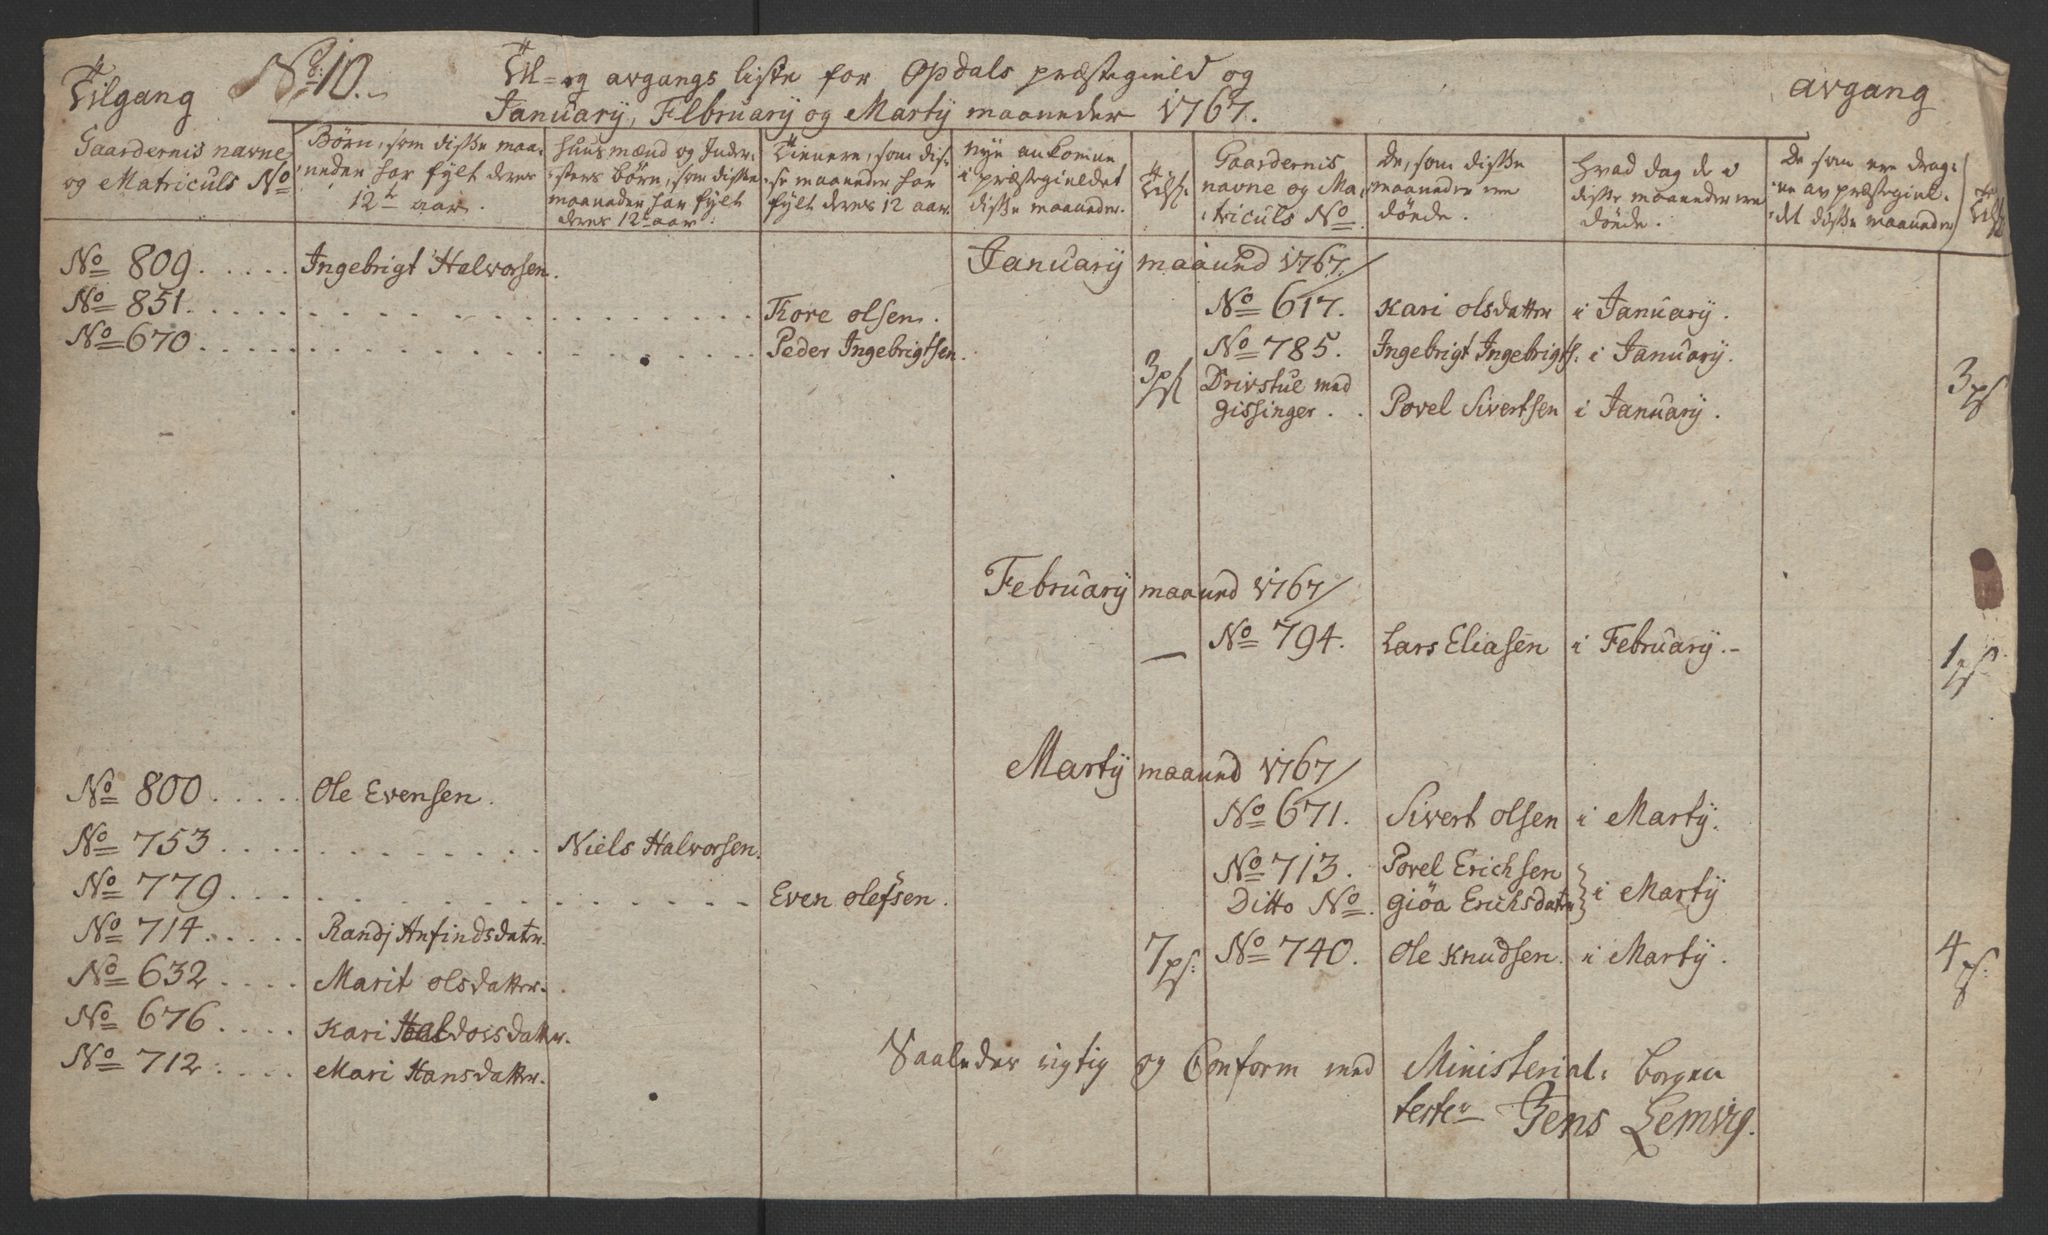 Tilgang No: 10. Til- og avgangs liste for Opdals præstegield og avgang
January, February og Martÿ maaneder 1767.
Gaardernis navne og Matriculs No
Børn, som disse maa- neder har fylt deres 12te aar.
Huusmænd og Inder- sters børn, som disse maaneder har fylt deres 12te aar.
Tienere, som dis- se maaneder har fylt deres 12 aar.
Nye ankomne i præstegieldet disse maaneder.
Tils:
Gaardernis navne og Ma- triculs No
De, som disse maaneder ere døede.
Hvad dag de i disse maaneder ere døede.
De som ere drag- ne av præstegiel- det disse maaneder
Tils:
Januarÿ maaned 1767/
No 809. . . . . . Ingebrigt Halvorsen.
No 851. . . . . . Tore olsen. No 617. Kari olsdatter i Januarÿ.
No 670. . . . . . Peder Ingebrigtsen. No 785. Ingebrigt Ingebrigts: i Januarÿ.
3 ps Drivstue med
gissinger . . Povel Sivertsen i Januarÿ. 3 ps
Februarÿ maaned 1767/
— No 794. Lars Eliasen i Februarÿ.- 1 ps
Martÿ maaned 1767/
No 800. . . . . Ole Evensen. No 671. Sivert olsen i Martÿ.
No 753 . . . . . Niels Halvorsen. No 713. Povel Erichsen
No 779. . . . . . Even olefsen. Ditto No. giöa Erichsdatr } i Martÿ
No 714. . . . . Randj Anfindsdatr. 7 ps: No 740. Ole Knudsen. i Martÿ. 4 ps:
No 632 . . . . Marit olsdatter.
No 676 . . . . Kari Haldorsdatter.
No 712. . . . . Mari Hansdatter.
Saaledes rigtig og Conform med Ministerial: borgen
tester Jens Lemvig.